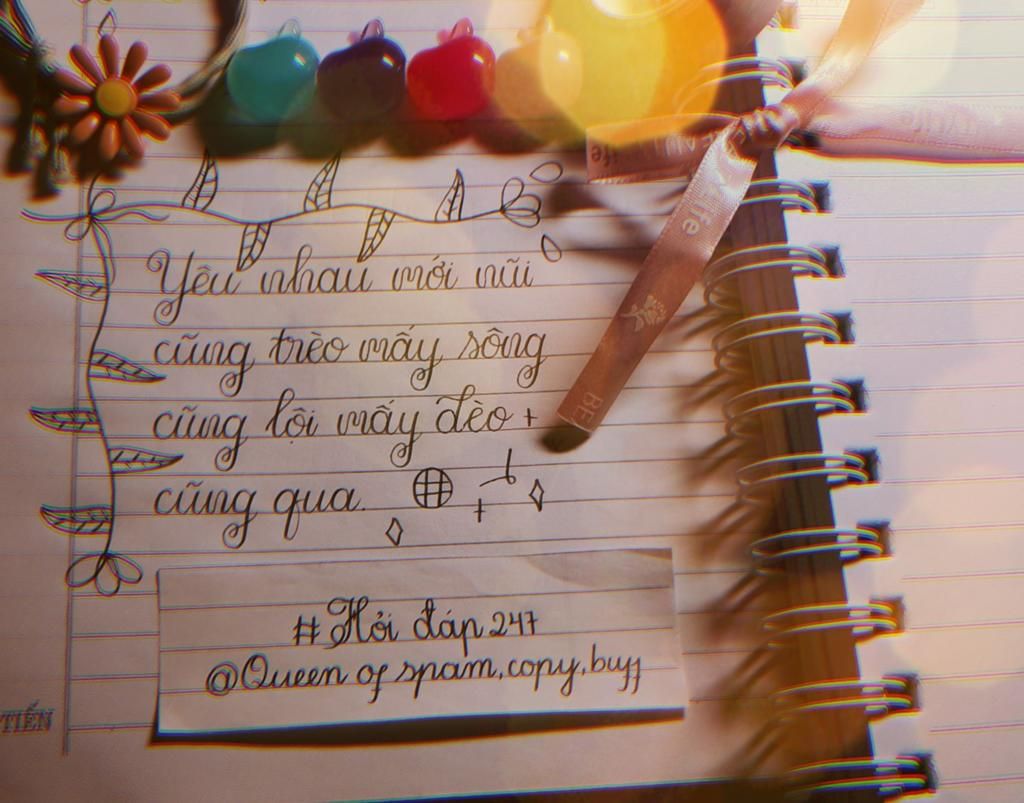 Yêu nhau mới nũi
cũng trèo mấy sông
cũng lội mấy đèo +
cũng qua.
#Hỏi đáp 247
@Queen of spam,copy,buff
TIẾN